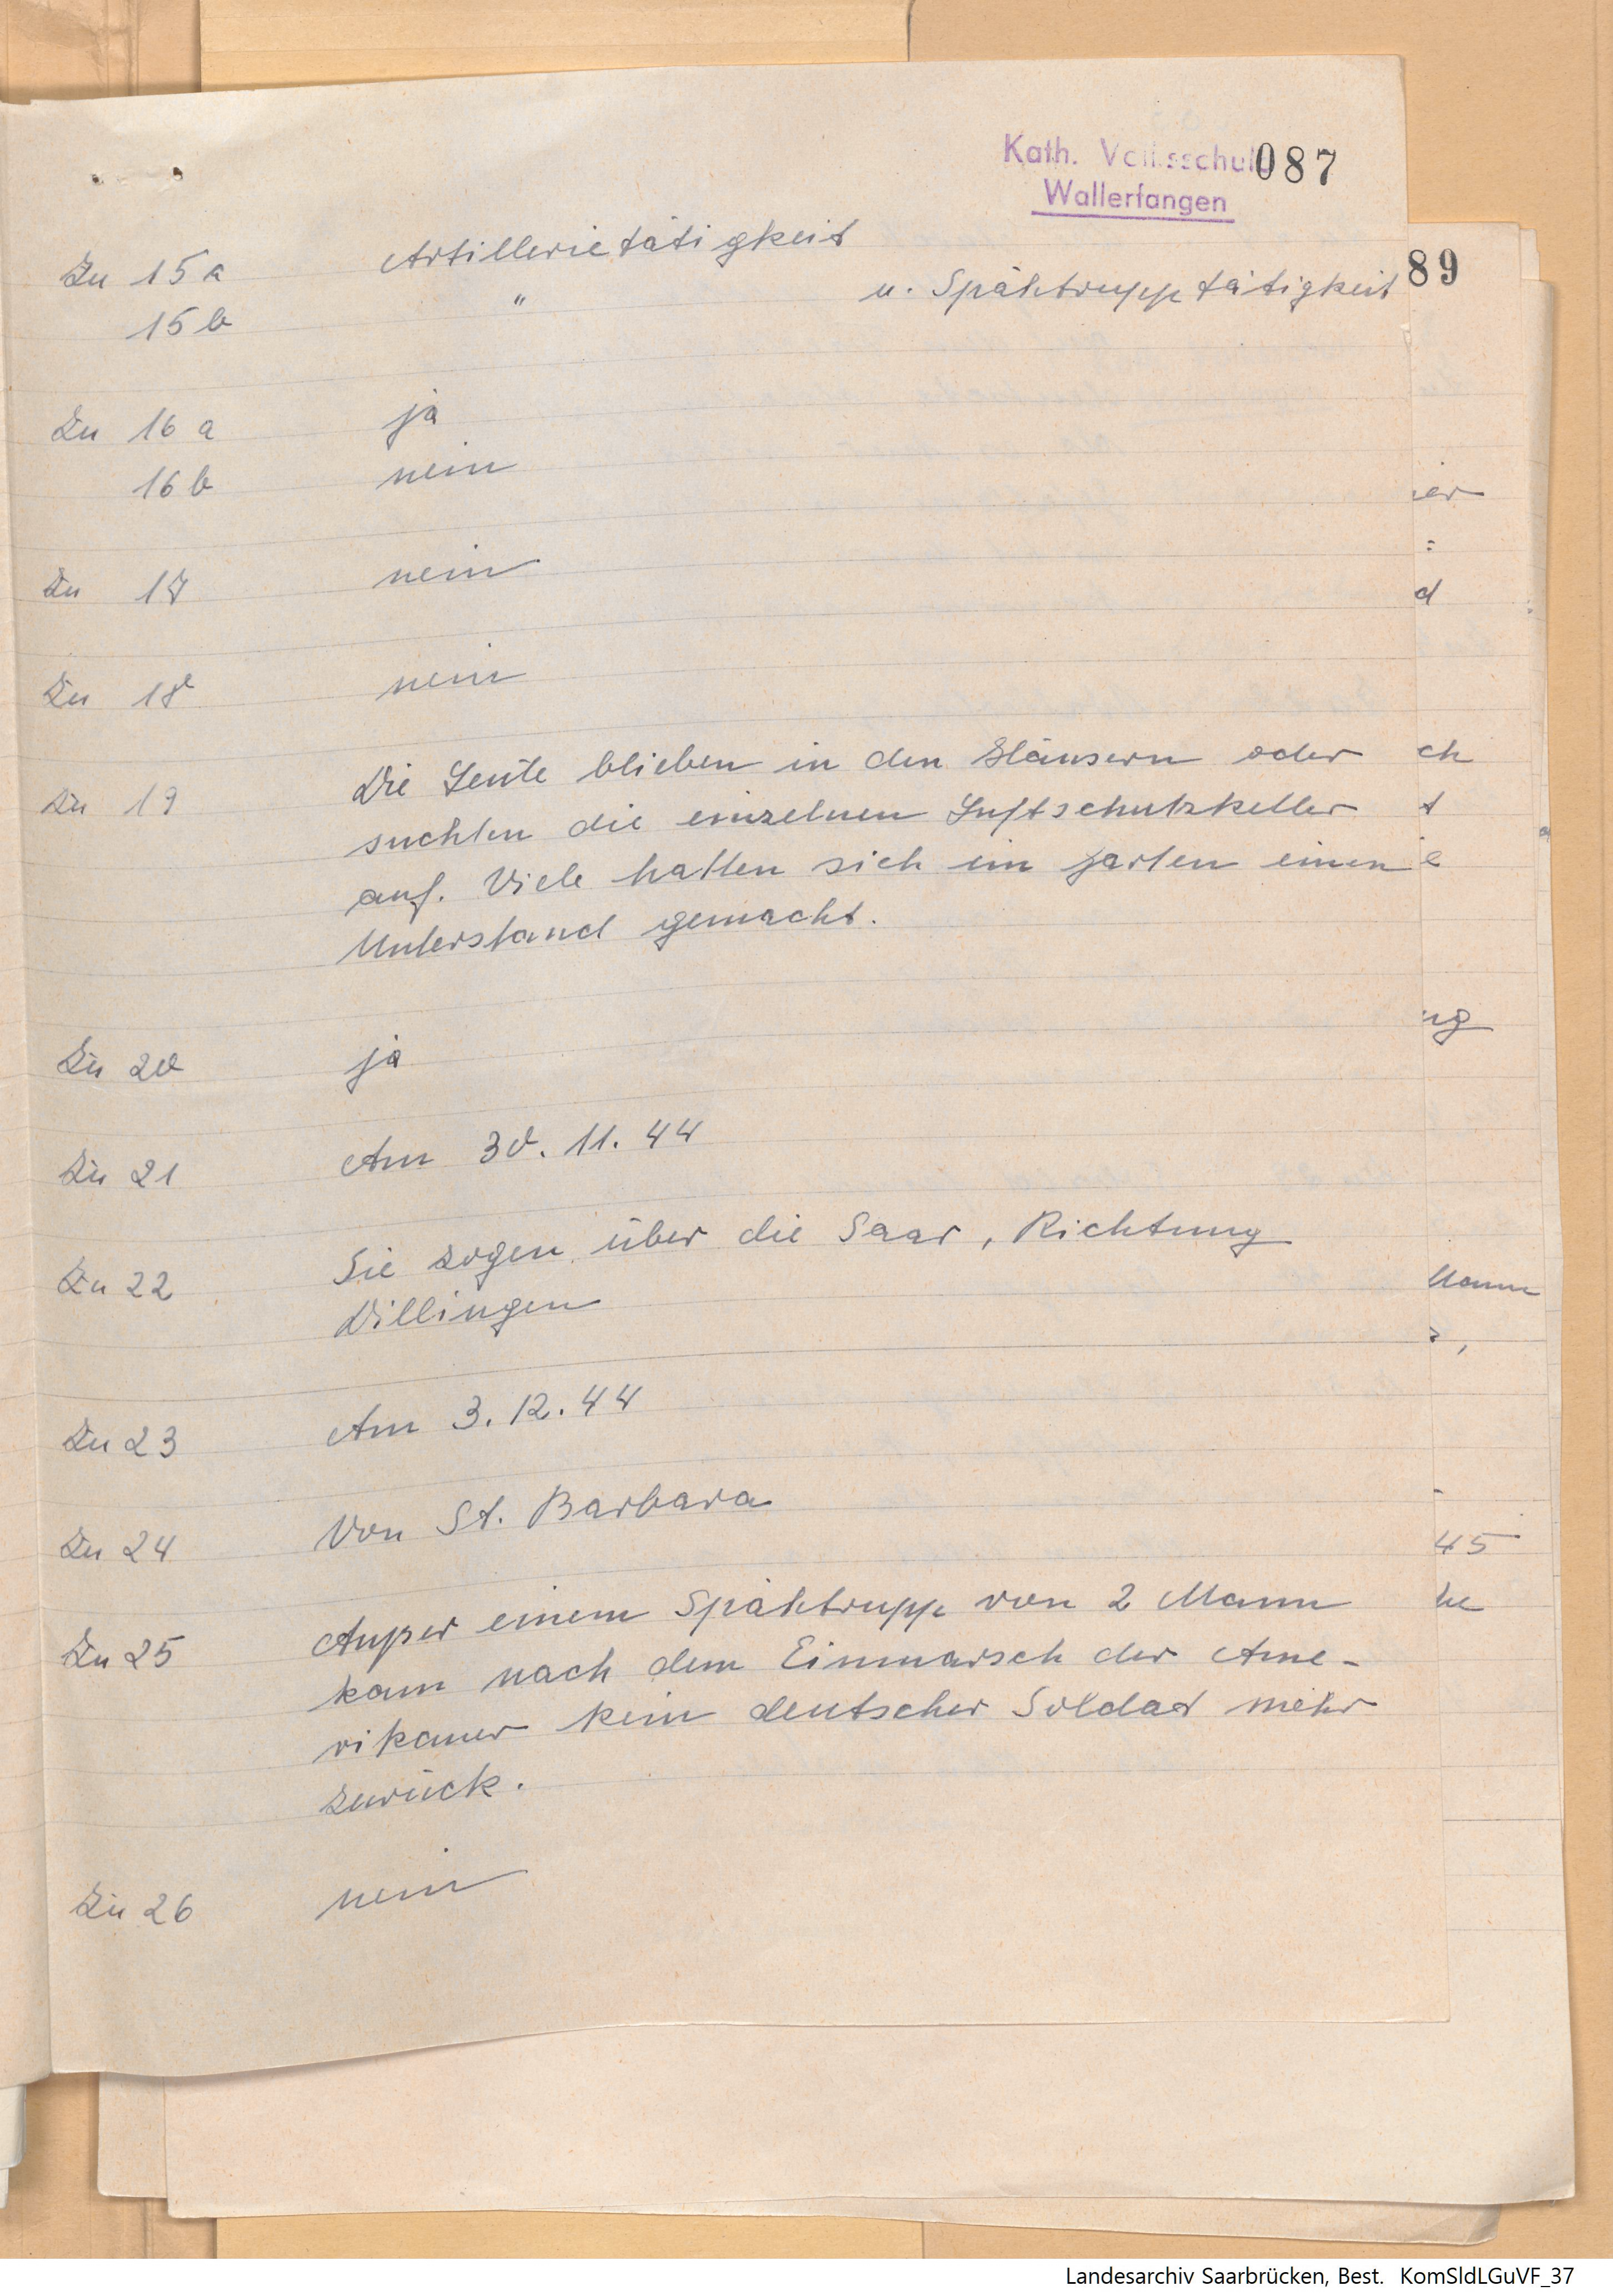 Kath. Volksschule 087
Wallerfangen
89
Zu 15 a Artillerietätigkeit
15 b " u. Spähtrupptätigkeit
Zu 16 a ja
16 b nein
Zu 17 nein
Zu 18 nein
Zu 19 Die Leute blieben in den Häusern oder
suchten die einzelnen Luftschutzkeller
auf. Viele hatten sich im Garten einen
Unterstand gemacht.
Zu 20 ja
Zu 21 Am 30. 11. 44
Zu 22 Sie zogen über die Saar, Richtung
Dillingen
Zu 23 Am 3. 12. 44
Zu 24 Von St. Barbara
Zu 25 Außer einem Spähtrupp von 2 Mann
kam nach dem Einmarsch der Ame-
rikaner kein deutscher Soldat mehr
zurück.
Zu 26 nein
45
Landesarchiv Saarbrücken, Best. KomSldLGuVF_37